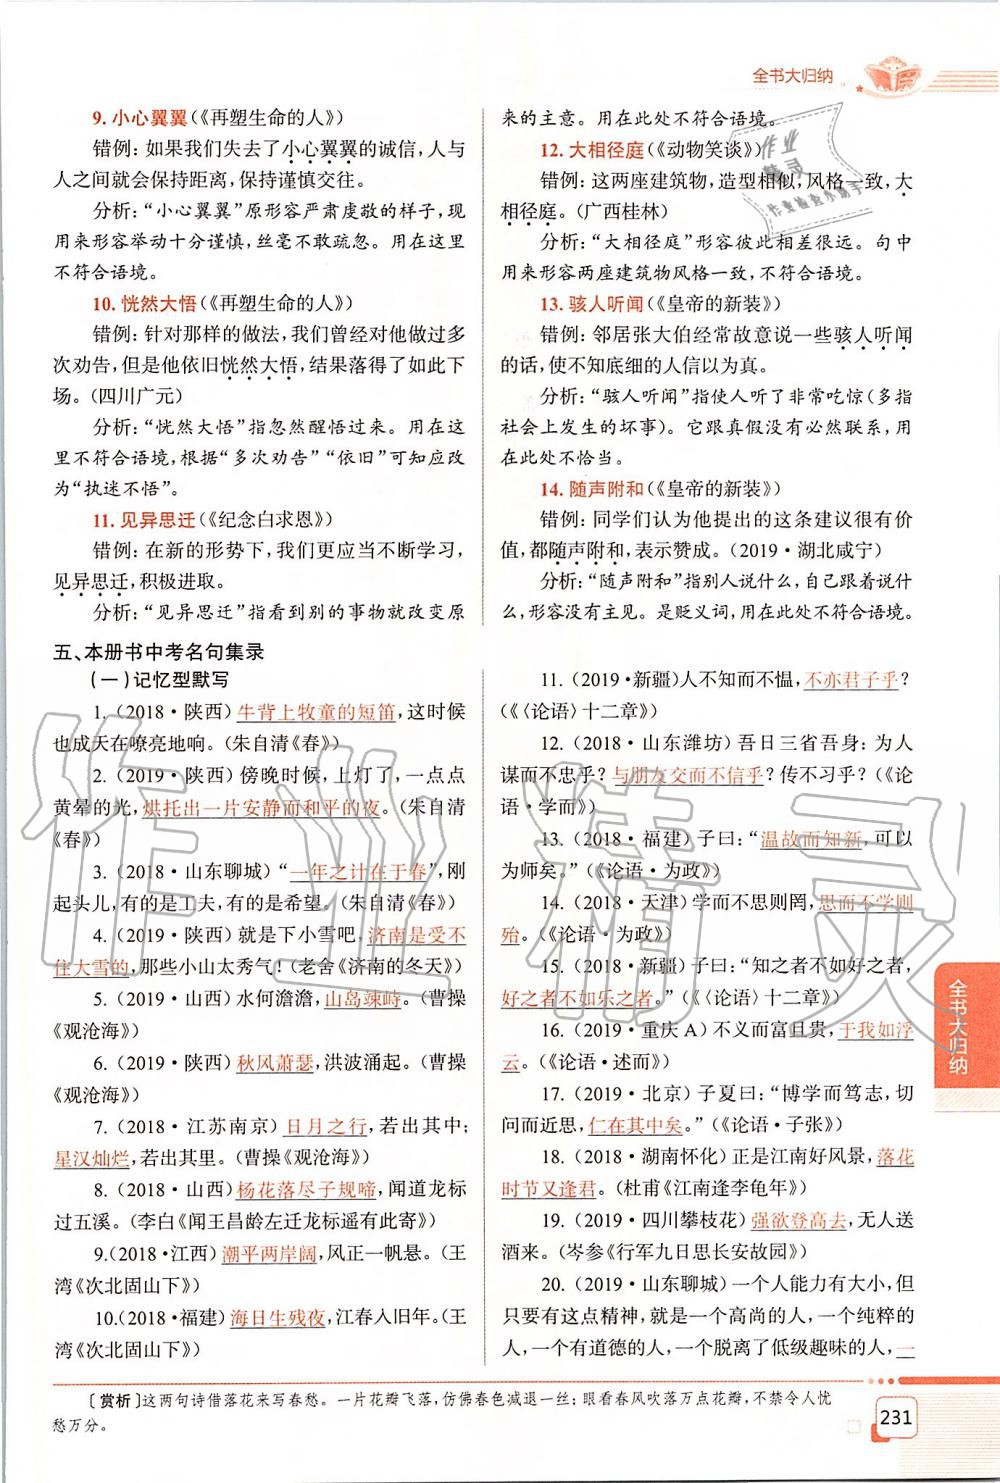 全书大归纳
9. 小心翼翼(《再塑生命的人》)
错例:如果我们失去了小心翼翼的诚信,人与
人之间就会保持距离,保持谨慎交往。
分析:“小心翼翼”原形容严肃虔敬的样子,现
用来形容举动十分谨慎,丝毫不敢疏忽。用在这里
不符合语境。
10. 恍然大悟(《再塑生命的人》)
错例:针对那样的做法,我们曾经对他做过多
次劝告,但是他依旧恍然大悟,结果落得了如此下
场。(四川广元)
分析:“恍然大悟”指忽然醒悟过来。用在这
里不符合语境,根据“多次劝告”“依旧”可知应改
为“执迷不悟”。
11. 见异思迁(《纪念白求恩》)
错例:在新的形势下,我们更应当不断学习,
见异思迁,积极进取。
分析:“见异思迁”指看到别的事物就改变原
来的主意。用在此处不符合语境。
12. 大相径庭(《动物笑谈》)
错例:这两座建筑物,造型相似,风格一致,大
相径庭。(广西桂林)
分析:“大相径庭”形容彼此相差很远。句中
用来形容两座建筑物风格一致,不符合语境。
13. 骇人听闻(《皇帝的新装》)
错例:邻居张大伯经常故意说一些骇人听闻
的话,使不知底细的人信以为真。
分析:“骇人听闻”指使人听了非常吃惊(多指
社会上发生的坏事)。它跟真假没有必然联系,用
在此处不恰当。
14. 随声附和(《皇帝的新装》)
错例:同学们认为他提出的这条建议很有价
值,都随声附和,表示赞成。(2019·湖北咸宁)
分析:“随声附和”指别人说什么,自己跟着说什
么,形容没有主见。是贬义词,用在此处不符合语境。
五、本册书中考名句集录
(一)记忆型默写
1.(2018·陕西)牛背上牧童的短笛,这时候
也成天在嘹亮地响。(朱自清《春》)
2.(2019·陕西)傍晚时候,上灯了,一点点
黄晕的光,烘托出一片安静而和平的夜。(朱自清
《春》)
3.(2018·山东聊城)“一年之计在于春”,刚
起头儿,有的是工夫,有的是希望。(朱自清《春》)
4.(2019·陕西)就是下小雪吧,济南是受不
住大雪的,那些小山太秀气!(老舍《济南的冬天》)
5.(2019·山西)水何澹澹,山岛竦峙。(曹操
《观沧海》)
6.(2019·陕西)秋风萧瑟,洪波涌起。(曹操
《观沧海》)
7.(2018·江苏南京)日月之行,若出其中;
星汉灿烂,若出其里。(曹操《观沧海》)
8.(2018·山西)杨花落尽子规啼,闻道龙标
过五溪。(李白《闻王昌龄左迁龙标遥有此寄》)
9.(2018·江西)潮平两岸阔,风正一帆悬。(王
湾《次北固山下》)
10.(2018·福建)海日生残夜,江春入旧年。(王
湾《次北固山下》)
11.(2019·新疆)人不知而不愠,不亦君子乎?
(《〈论语〉十二章》)
12.(2018·山东潍坊)吾日三省吾身:为人
谋而不忠乎?与朋友交而不信乎?传不习乎?(《论
语·学而》)
13.(2018·福建)子曰:“温故而知新,可以
为师矣。”(《论语·为政》)
14.(2018·天津)学而不思则罔,思而不学则
殆。(《论语·为政》)
15.(2018·新疆)子曰:“知之者不如好之者,
好之者不如乐之者。”(《〈论语〉十二章》)
16.(2019·重庆A)不义而富且贵,于我如浮
云。(《论语·述而》)
17.(2019·北京)子夏曰:“博学而笃志,切
问而近思,仁在其中矣。”(《论语·子张》)
18.(2018·湖南怀化)正是江南好风景,落花
时节又逢君。(杜甫《江南逢李龟年》)
19.(2019·四川攀枝花)强欲登高去,无人送
酒来。(岑参《行军九日思长安故园》)
20.(2019·山东聊城)一个人能力有大小,但
只要有这点精神,就是一个高尚的人,一个纯粹的
人,一个有道德的人,一个脱离了低级趣味的人,一
全书大归纳
[赏析]这两句诗借落花来写春愁。一片花瓣飞落,仿佛春色减退一丝;眼看春风吹落万点花瓣,不禁令人忧
愁万分。
231
作业精灵
作业
精灵
作业检查小助手